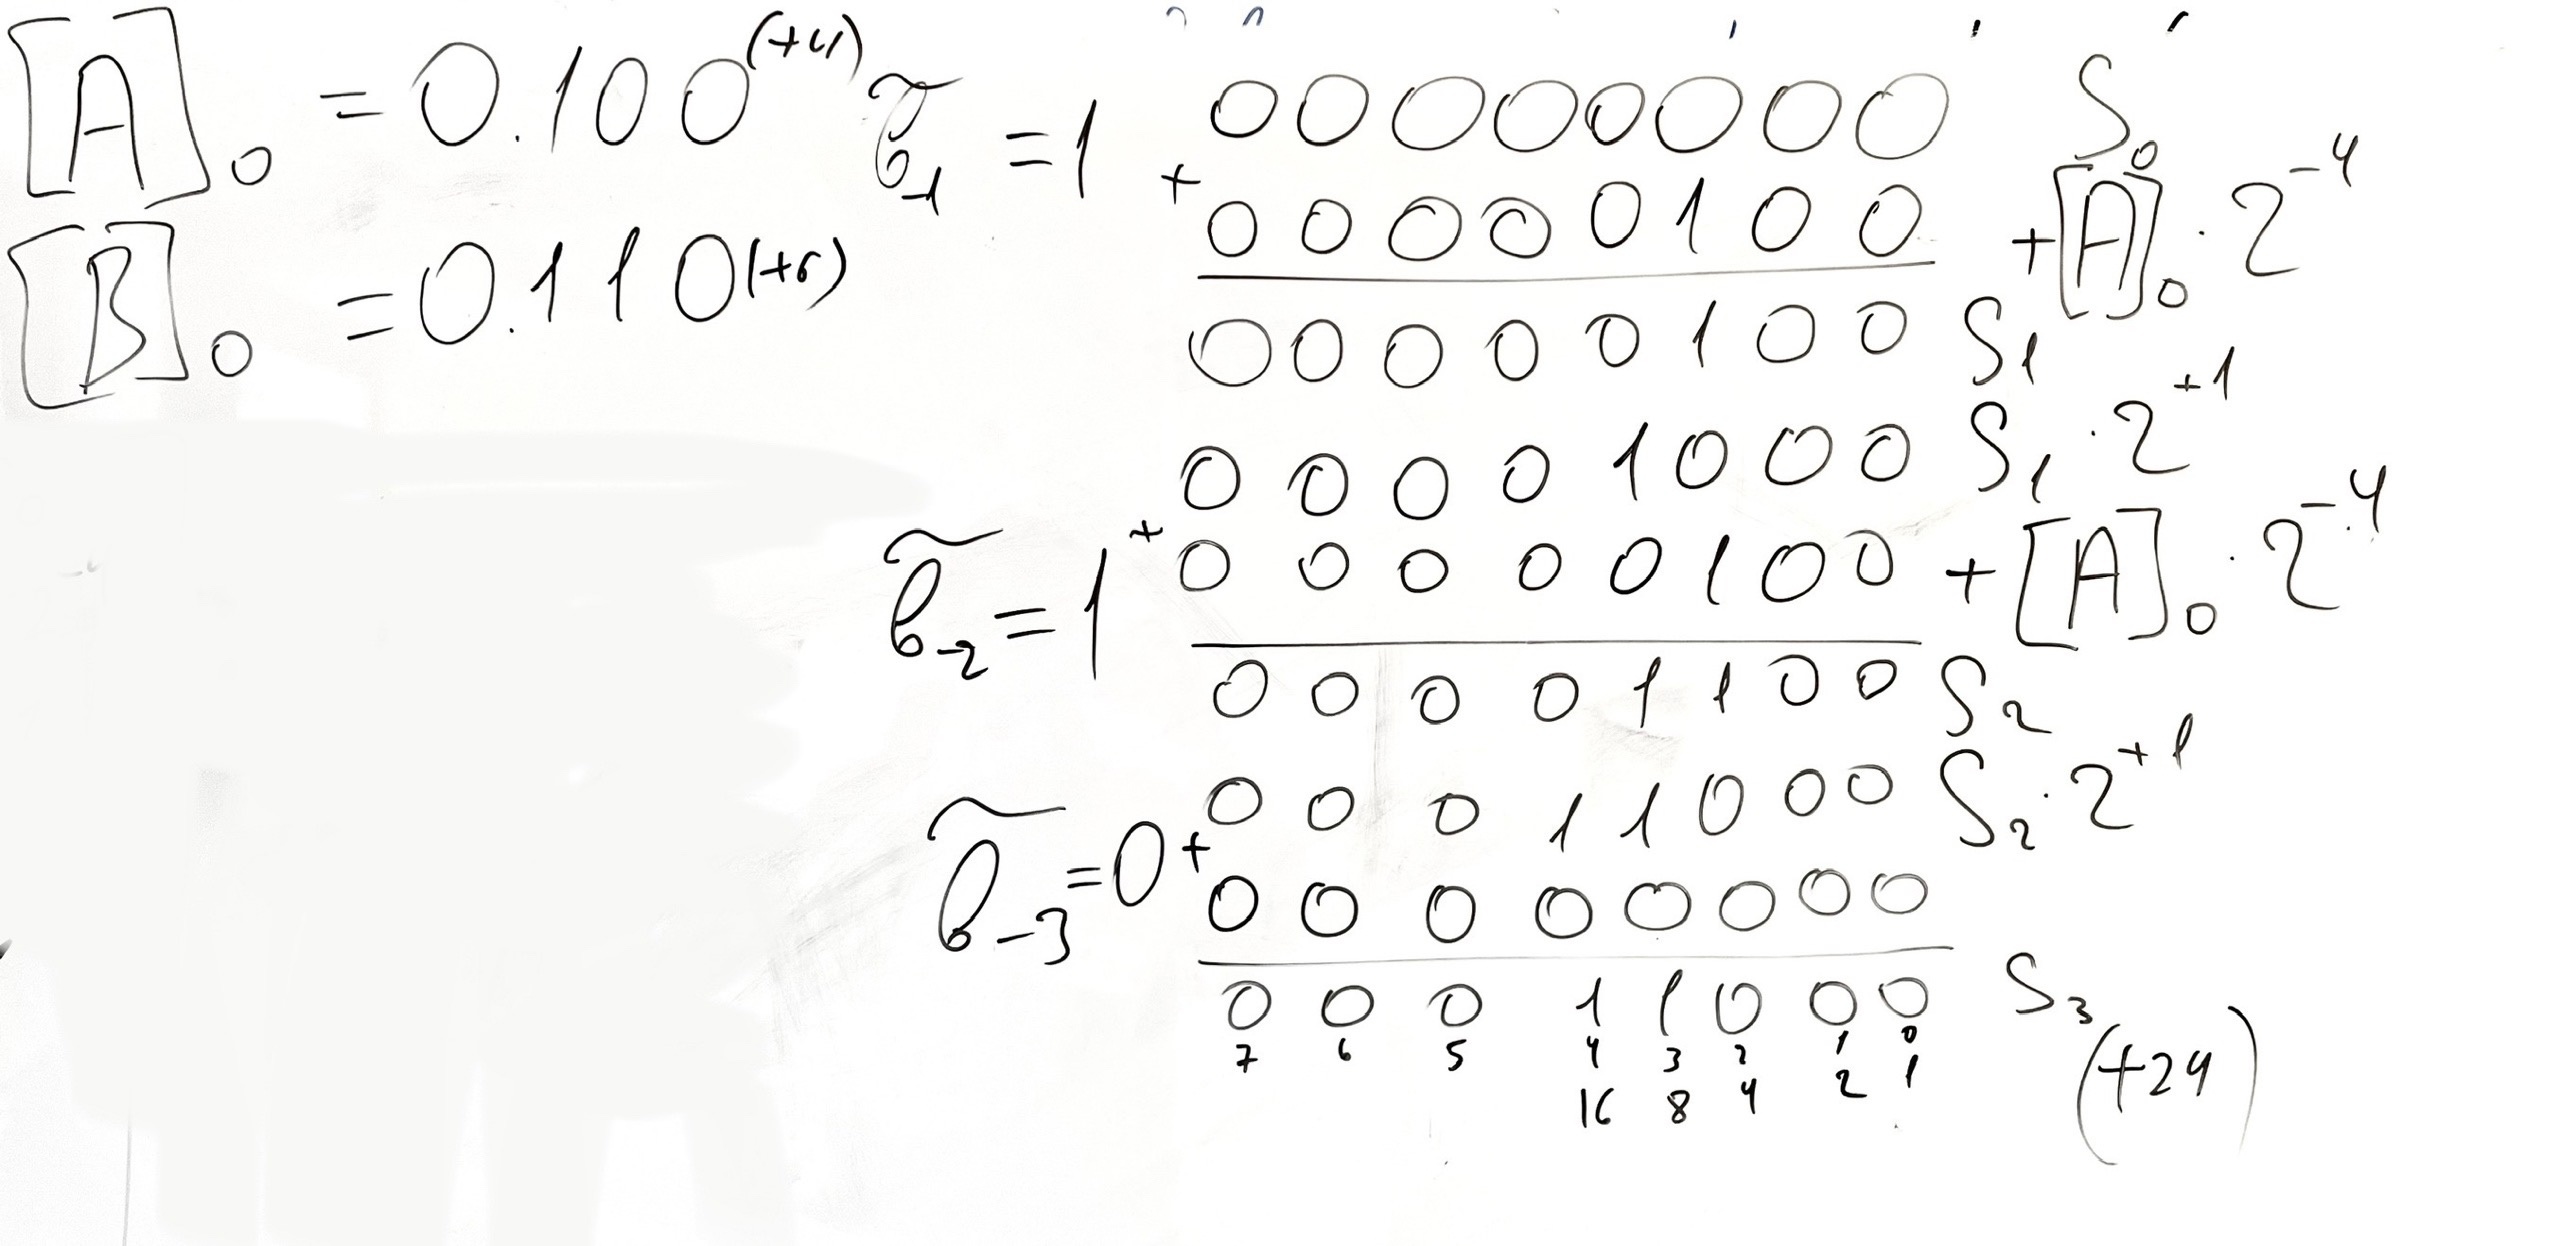 [A]₀ = 0.100 (+4)
[B]₀ = 0.110 (+6)
b̃₋₁ = 1
0 0 0 0 0 0 0 0 S₀
+ 0 0 0 0 0 1 0 0 +[A]₀ · 2⁻⁴
0 0 0 0 0 1 0 0 S₁
0 0 0 0 1 0 0 0 S₁ · 2⁺¹
b̃₋₂ = 1
+ 0 0 0 0 0 1 0 0 + [A]₀ · 2⁻⁴
0 0 0 0 1 1 0 0 S₂
0 0 0 1 1 0 0 0 S₂ · 2⁺¹
b̃₋₃ = 0
+ 0 0 0 0 0 0 0 0
0 0 0 1 1 0 0 0 S₃
7 6 5 4 3 2 1 0
16 8 4 2 1
(+24)